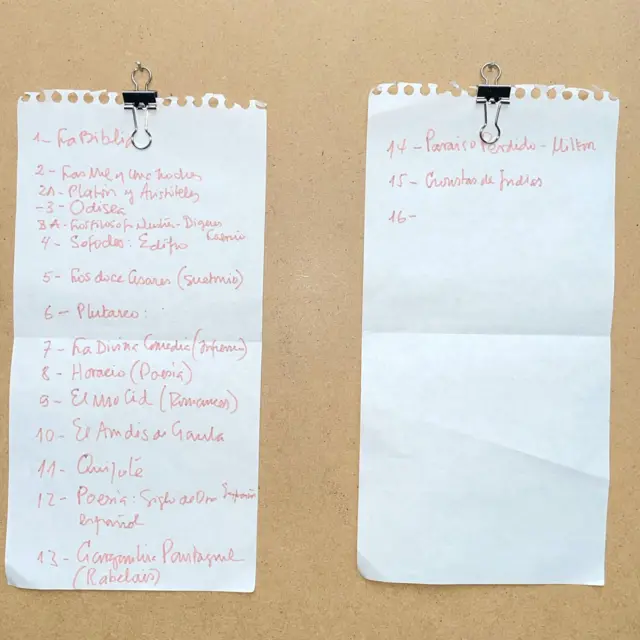 1- La Biblia
2- Las Mil y una noches
2A- Platón y Aristóteles
-3- Odisea
3A- Los filósofos - Diógenes
4- Sófocles: Edipo
5- Los doce Césares (Suetonio)
6- Plutarco:
7- La Divina Comedia (Infierno)
8- Horacio (Poesía)
9- El Mio Cid (Romances)
10- El Amadís de Gaula
11- Quijote
12- Poesía: Siglo de Oro
español
13- Gargantúa Pantagruel
(Rabelais)
14- Paraíso Perdido - Milton
15- Cronistas de Indias
16-